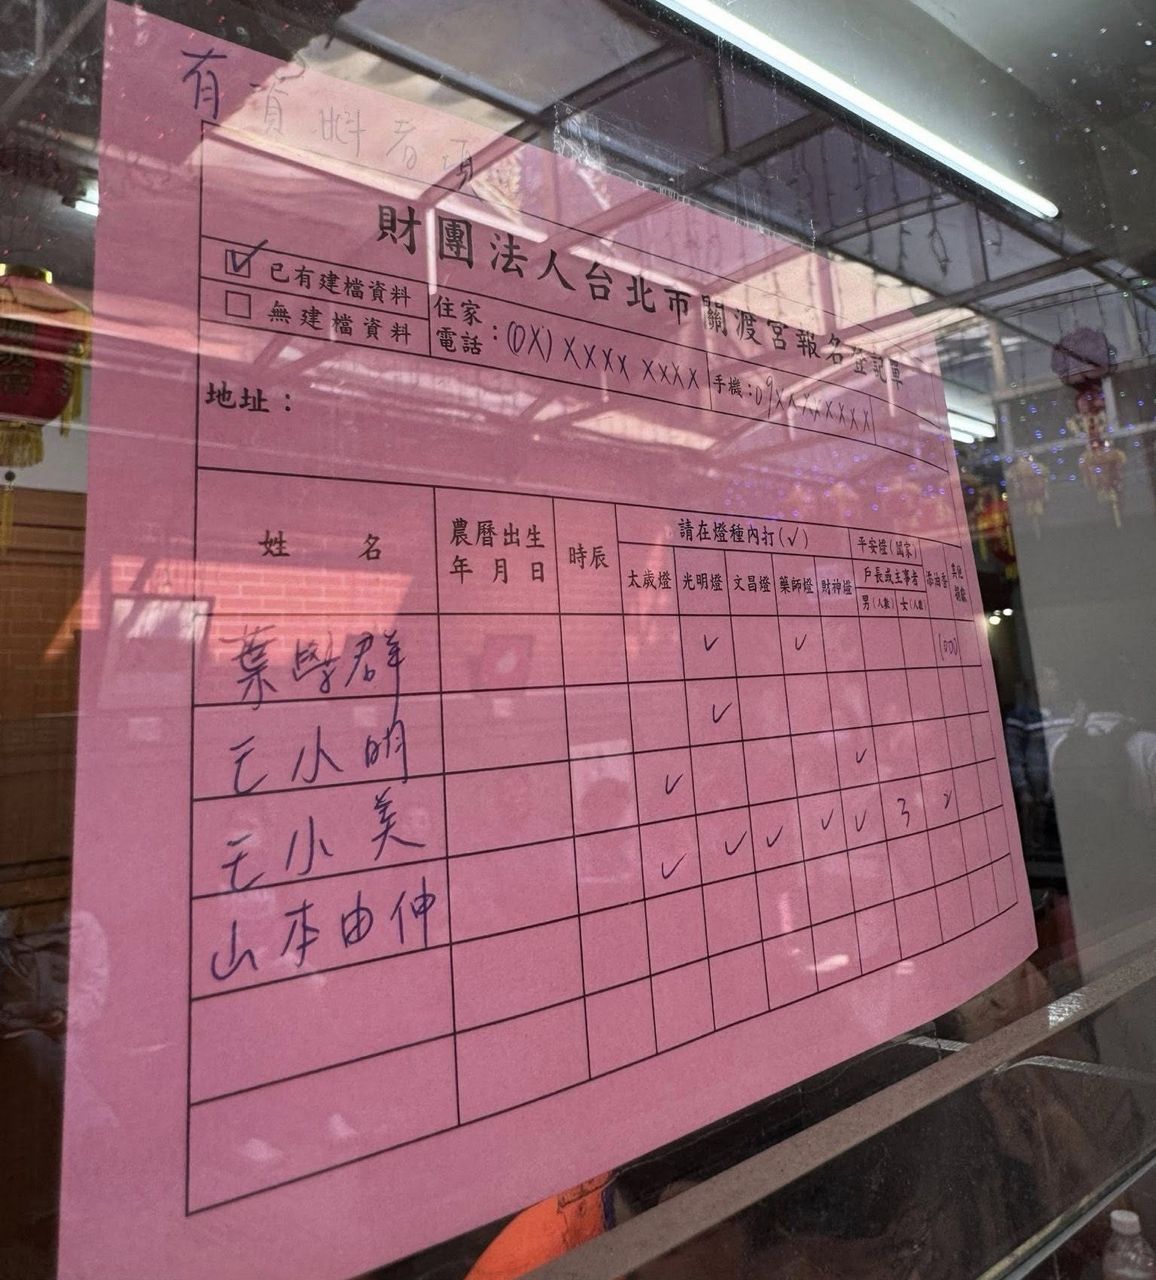 有資料者項
財團法人台北市關渡宮報名登記單
☑ 已有建檔資料
☐ 無建檔資料
住家電話：(0X) XXXX XXXX
手機：09XXXXXXXX
地址：
姓 名 農曆出生年月日 時辰 請在燈種內打(✓) 平安燈(闔家) 添油香
太歲燈 光明燈 文昌燈 藥師燈 財神燈 戶長或主事者
男(人數) 女(人數)
葉學群 ✓ ✓
王小明 ✓
王小美 ✓ ✓
山本由伸 ✓ ✓ ✓ ✓ ✓ 3 2